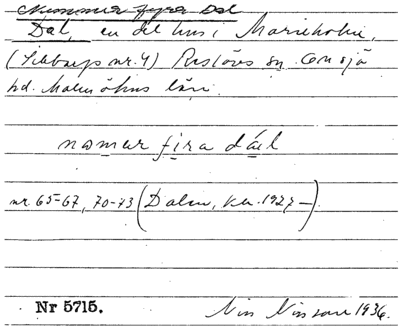 Nummer fyra Dal
Dal, en del hus i Marieholm,
(Sibbarp nr. 4) Reslövs sn Onsjö
hd. Malmöhus län.
nomar fira dáel
nr. 65-67, 70-73 (Dalen, Kla. 1927 –)
Nr 5715.
Nils Nilsson 1936.